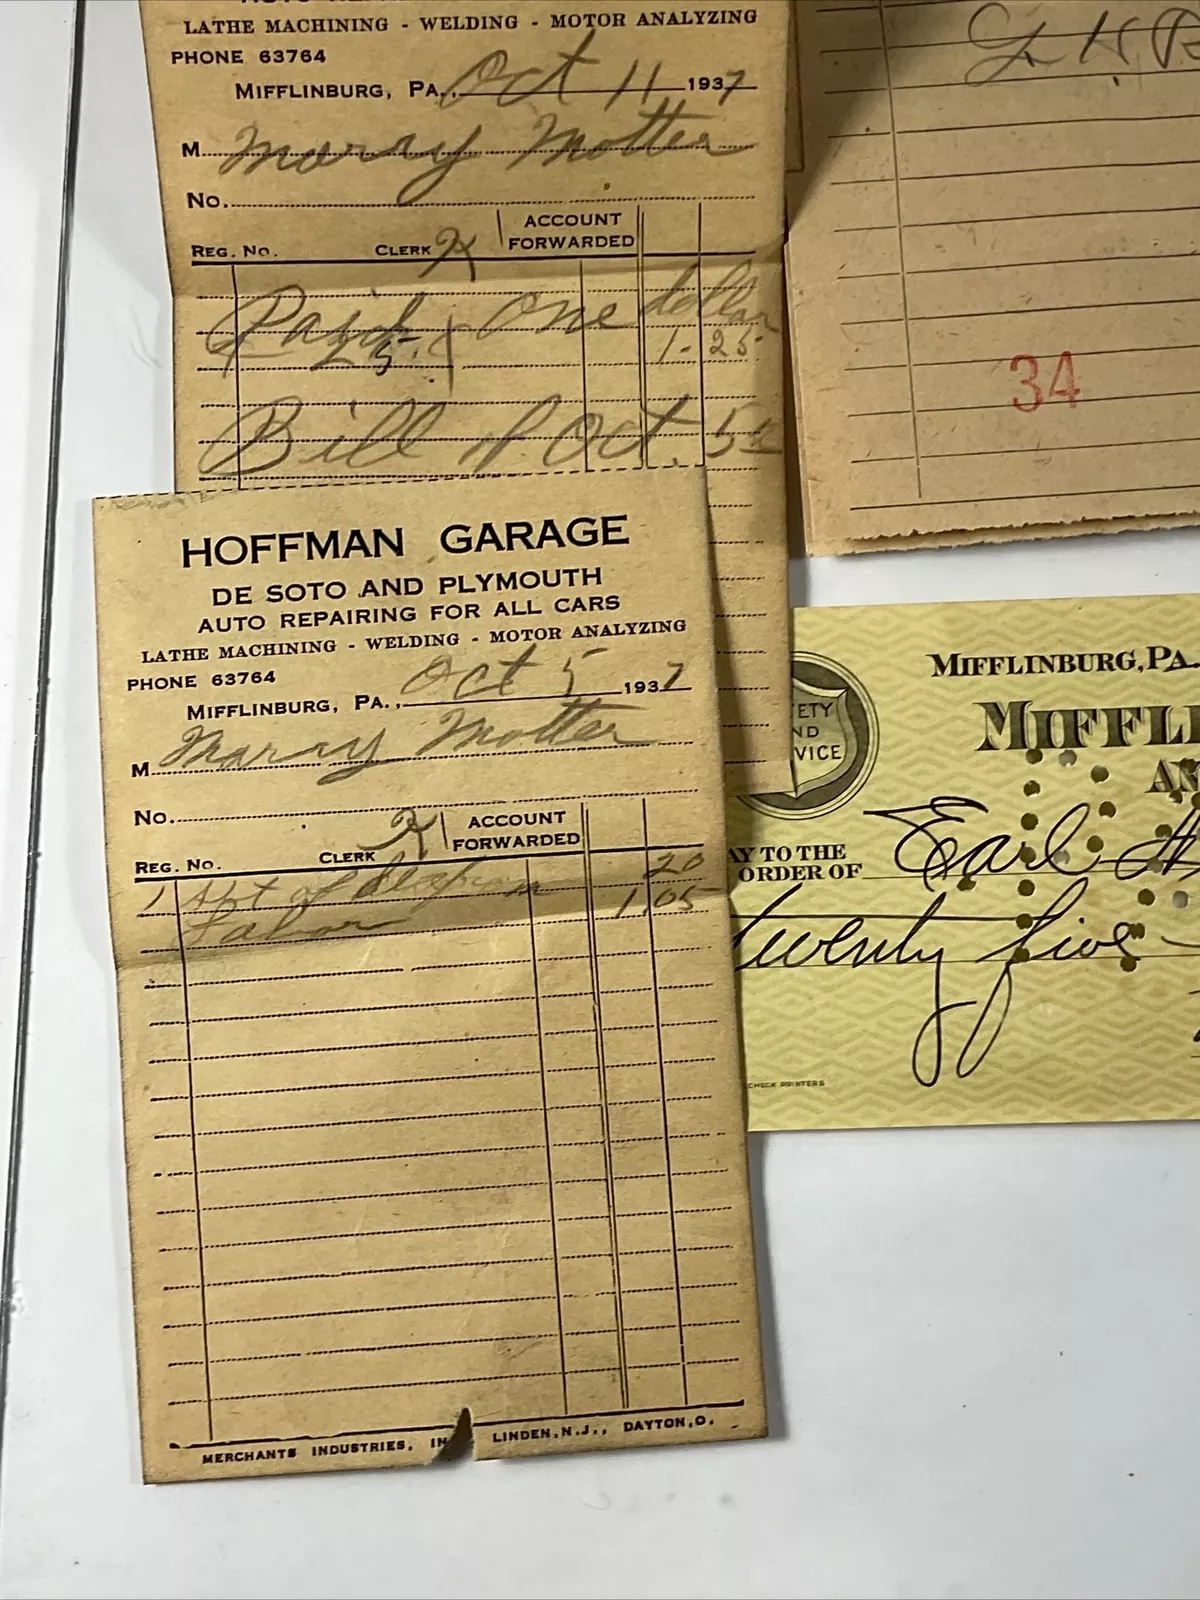 LATHE MACHINING - WELDING - MOTOR ANALYZING
PHONE 63764
MIFFLINBURG, PA., Oct 11 1937
M Marry Motter
No.
REG. No. CLERK ACCOUNT FORWARDED
Paid one dollar
25 1.25
Bill of Oct. 5
HOFFMAN GARAGE
DE SOTO AND PLYMOUTH
AUTO REPAIRING FOR ALL CARS
LATHE MACHINING - WELDING - MOTOR ANALYZING
PHONE 63764
MIFFLINBURG, PA., Oct 5 1937
M Marry Motter
No.
REG. No. CLERK ACCOUNT FORWARDED
1 pt of 20
Labor 1.05
MERCHANTS INDUSTRIES, IN LINDEN, N.J., DAYTON, O.
L H
34
ETY
ND
VICE
MIFFLINBURG, PA.
MIFFLI
AN
AY TO THE
ORDER OF Earl H
twenty five
CHECK PRINTERS